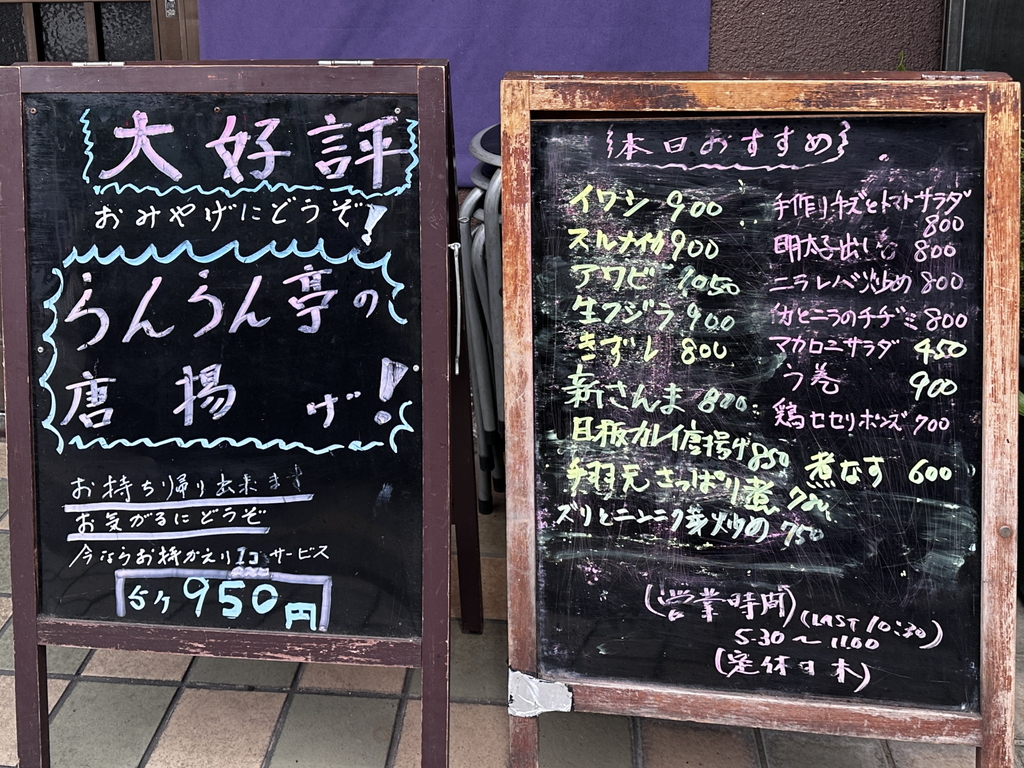 大好評
おみやげにどうぞ!
らんらん亭の
唐揚げ!
お持ち帰り出来ます
お気がるにどうぞ
今ならお持かえり1コサービス
5ケ950円
本日おすすめ
イワシ 900
スルメイカ 900
アワビ 1050
生フジラ 900
きずし 800
新さんま 800
目板カレイ唐揚げ 850
手羽元さっぱり煮 720
ズリとニンニク芽炒め 750
手作りチーズとトマトサラダ
800
明太子出し巻 800
ニラレバ炒め 800
イカとニラのチヂミ 800
マカロニサラダ 450
う巻 900
鶏セセリポンズ 700
煮なす 600
(営業時間)
(LAST 10:30)
5.30〜11.00
(定休日木)